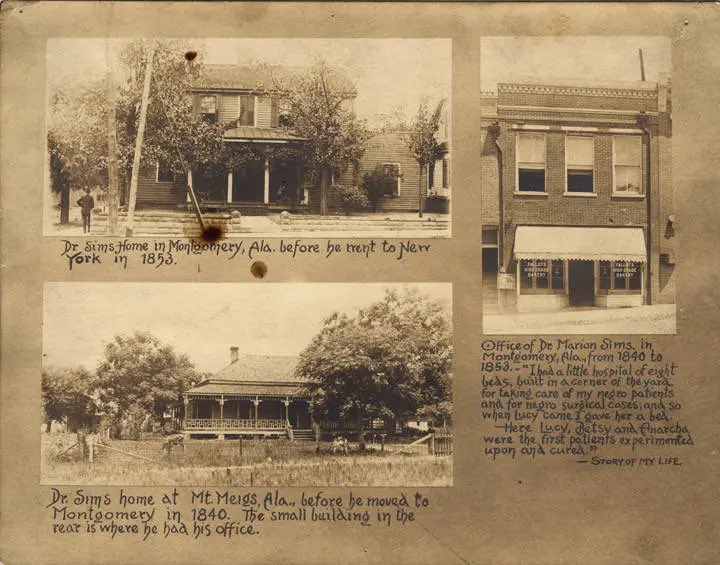 Dr. Sims Home in Montgomery, Ala. before he went to New
York in 1853.
FALLOT'S
HIGH GRADE
BAKERY
FALLOT'S
HIGH GRADE
BAKERY
Office of Dr. Marion Sims. in
Montgomery, Ala., from 1840 to
1853. - "I had a little hospital of eight
beds, built in a corner of the yard,
for taking care of my negro patients
and for negro surgical cases; and so
when Lucy came I gave her a bed.
—Here Lucy, Betsy and Anarcha
were the first patients experimented
upon and cured."
— STORY OF MY LIFE.
Dr. Sims home at Mt. Meigs, Ala., before he moved to
Montgomery in 1840. The small building in the
rear is where he had his office.